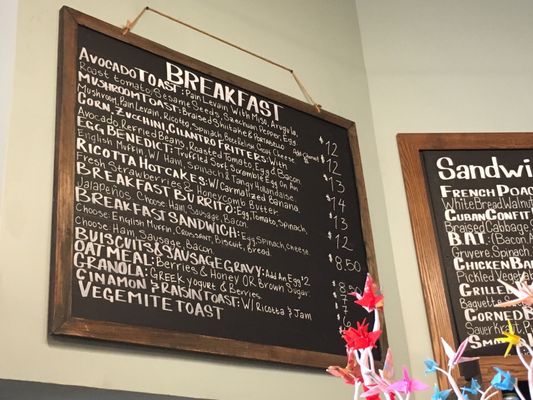 BREAKFAST
AVOCADO TOAST: Pain Levain With Miso, Arugula,
Roast tomato, Sesame Seeds, Szechuan Pepper, Egg. $12
MUSHROOM TOAST: Braised Shiitake & Portabello
Mushroom, Pain Levain, Ricotta, Spinach, Goat Cheese $12
CORN, ZUCCHINI, CILANTRO FRITTERS: With
Avocado, Refried Beans, Roasted Tomato, Egg & Bacon $13
EGG BENEDICT: Truffled Sort Scramble Egg On An
English Muffin W/ Ham, Spinach & Tangy Hollandaise $14
RICOTTA HOTCAKES: W/ Carmalized Banana,
Fresh Strawberries & Honeycomb Butter $13
BREAKFAST BURRITO: Egg, Tomato, Spinach,
Jalapeños. Choose Ham, Sausage, Bacon $12
BREAKFAST SANDWICH: Egg, Spinach, cheese
Choose: English Muffin, Croissant, Biscuit, Bread.
Choose: Ham, Sausage, Bacon $8.50
BUISCUITS & SAUSAGE GRAVY: Add An Egg $2 8.50
OATMEAL: Berries & Honey OR Brown Sugar $7
GRANOLA: Greek yogurt & Berries
CINAMON & RAISIN TOAST: W/ Ricotta & Jam
VEGEMITE TOAST
SANDWI
FRENCH POA
White Bread Walnut
CUBAN CONFIT
Braised Cabbage
B.A.T: (Bacon, A
Gruyere, Spec
CHICKEN BA
Pickled Veg
GRILLE
Baguette
CORNED
Sauer Kraut